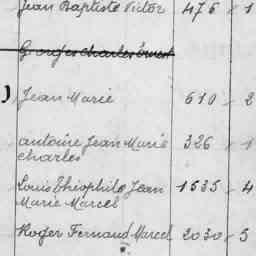 Jean Baptiste Victor 476 - 1
Georges Charles Ernest
) Jean Marie 610 - 2
antoine Jean Marie 326 - 1
Charles
Louis Théophile Jean 1535 - 4
Marie Marcel
Roger Fernand Marcel 2030 - 5